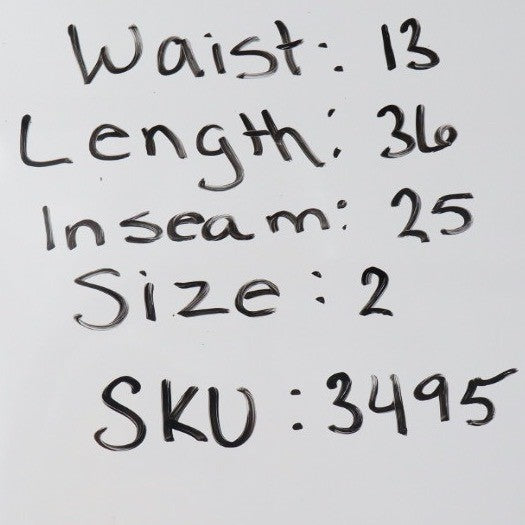 Waist: 13
Length: 36
Inseam: 25
Size: 2
SKU: 3495